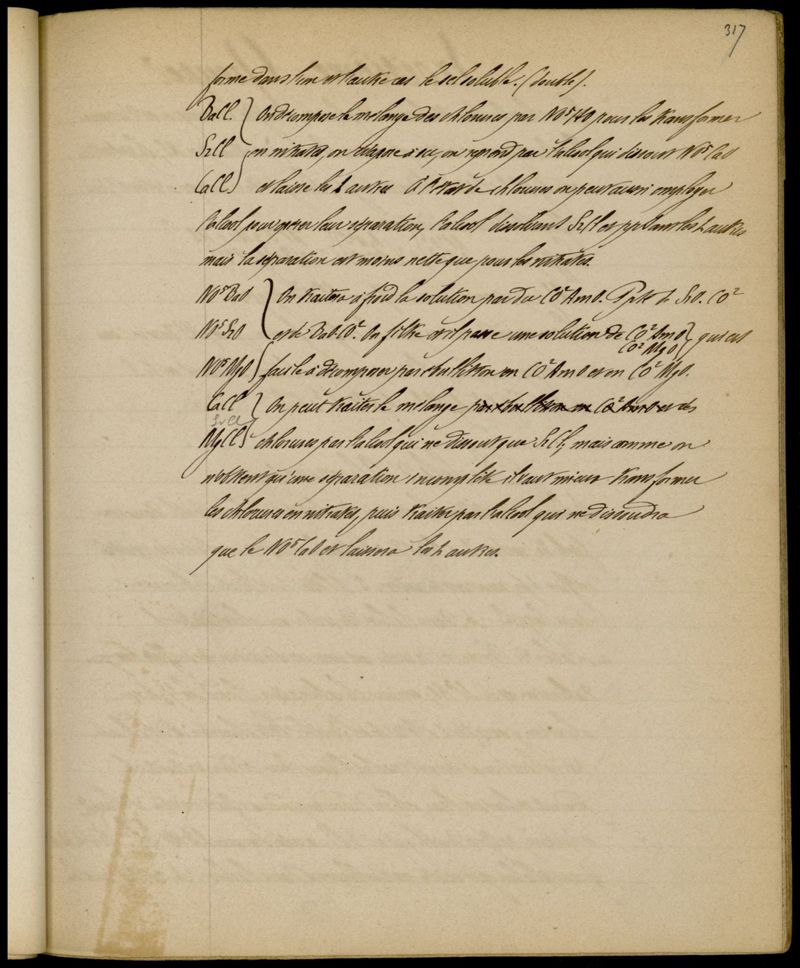 317
forme dans l'un et l'autre cas le sel soluble. (double).
BaCl. } On décompose le mélange des chlorures par NO⁵HO pour les transformer
SrCl en nitrates, on évapore à sec, on reprend par l'alcool qui dissout NO⁵CaO
CaCl. et laisse les 2 autres. A l'état de chlorures on peut aussi employer
l'alcool pour opérer leur séparation, l'alcool dissolvant SrCl et les 2 autres
mais la séparation est moins nette que pour les nitrates.
NO⁵BaO } On traitera à froid la solution par du CO²AmO. Ppté de SrO.CO²
NO⁵SrO et de BaO.CO². On filtre et il passe une solution de CO²AmO } qui est
CO²MgO
NO⁵MgO facile à décomposer par ébullition en CO²AmO et en CO²MgO.
CaCl } On peut traiter le mélange par ébullition en CO²AmO et des
SrCl
MgCl chlorures par l'alcool qui ne dissout que SrCl, mais comme on
n'obtient qu'une séparation incomplète il vaut mieux transformer
les chlorures en nitrates, puis traiter par l'alcool qui ne dissoudra
que le NO⁵CaO et laissera les 2 autres.